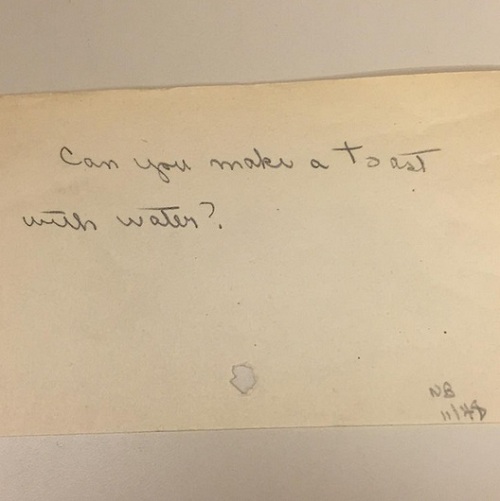 Can you make a toast
with water?
NB
11/48